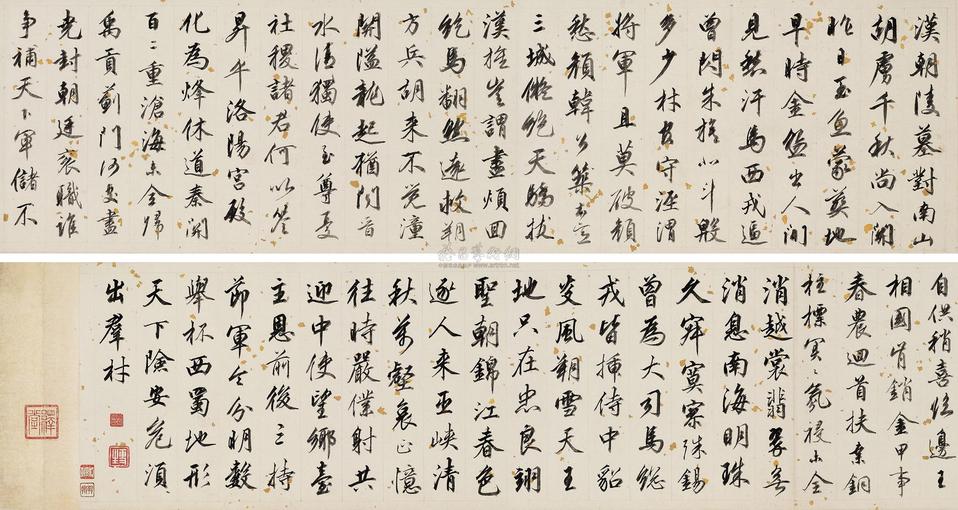 漢朝陵墓對南山
胡虜千秋尚入關
昨日玉魚蒙葬地
早時金盌出人間
見愁汗馬西戎逼
曾閃朱旗北斗殷
多少材官守涇渭
將軍且莫破顏
愁顏韓公築本意
三城擬絕天驕拔
漢旌豈謂盡煩回
紇馬翻然遠救朔
方兵胡來不覺潼
關隘龍起猶聞晉
水清獨使至尊憂
社稷諸君何以答
昇平洛陽宮殿
化為烽休道秦關
百二重滄海未全歸
禹貢薊門何處盡
堯封朝廷袞職誰
爭補天下軍儲不
自供稍喜臨邊王
相國肯銷金甲事
春農迴首扶桑銅
柱標冥冥氛祲未全
消越裳翡翠無
消息南海明珠
久寂寞寥殊錫
曾為大司馬總
戎皆插侍中貂
炎風朔雪天王
地只在忠良翊
聖朝錦江春色
逐人來巫峽清
秋萬壑哀正憶
往時嚴僕射共
迎中使望鄉臺
主恩前後三持
節軍令分明數
舉杯西蜀地形
天下險安危須
出羣材